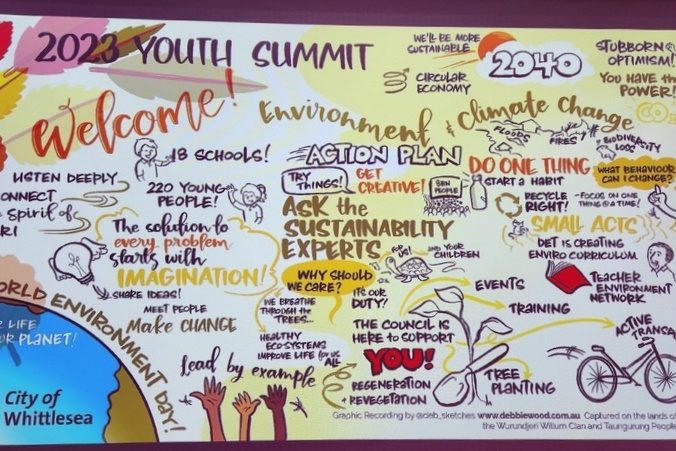 2023 YOUTH SUMMIT
Welcome!
18 SCHOOLS!
LISTEN DEEPLY
220 YOUNG
PEOPLE!
CONNECT
Spirit of
The solution to
every problem
starts with
IMAGINATION!
SHARE IDEAS!
MEET PEOPLE
Make CHANGE
Lead by example
WORLD ENVIRONMENT DAY!
LIFE
PLANET!
City of
Whittlesea
WE'LL BE MORE
SUSTAINABLE
CIRCULAR
ECONOMY
2040
STUBBORN
OPTIMISM!
YOU HAVE the
POWER!
Environment & Climate Change
FLOODS
FIRES
BIODIVERSITY
LOSS
ACTION PLAN
TRY
THINGS!
GET
CREATIVE!
PEOPLE
ASK the
SUSTAINABILITY
EXPERTS
FOR
US!
AND YOUR
CHILDREN
DO ONE THING
START A HABIT
WHAT BEHAVIOUR
CAN I CHANGE?
RECYCLE
RIGHT!
- FOCUS ON ONE
THING @ A TIME!
SMALL ACTS
DET IS CREATING
ENVIRO CURRICULUM
TEACHER
ENVIRONMENT
NETWORK
WHY SHOULD
WE CARE?
WE BREATHE
THROUGH the
TREES...
IT'S OUR
DUTY?
HEALTHY
ECO-SYSTEMS
IMPROVE LIFE for US
ALL
THE COUNCIL IS
HERE to SUPPORT
YOU!
REGENERATION
+ REVEGETATION
EVENTS
TRAINING
TREE
PLANTING
ACTIVE
Graphic Recording by @deb_sketches www.debbiewood.com.au Captured on the lands of
the Wurundjeri Willum Clan and Taungurung People